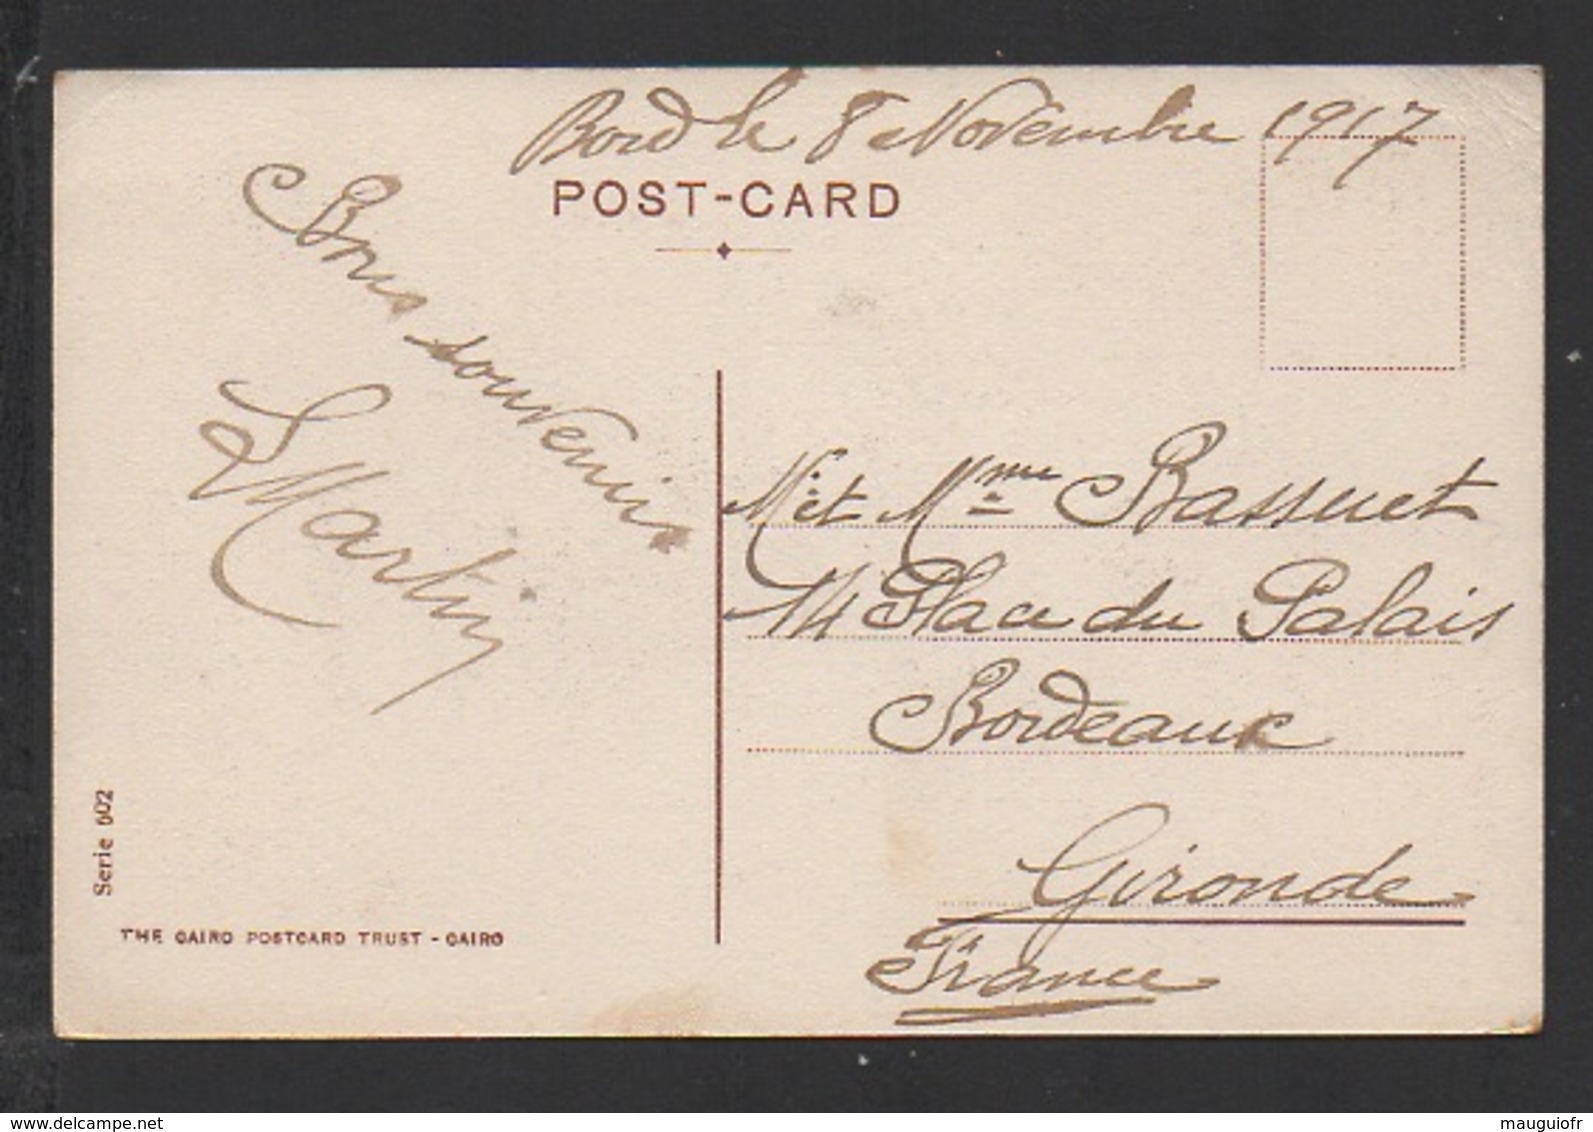 Bord le 8 Novembre 1917
POST-CARD
Bons souvenirs
Martin
Mr et Mme Bassuet
14 Place du Palais
Bordeaux
Gironde
France
Serie 602
THE CAIRO POSTCARD TRUST - CAIRO
www.delcampe.net
mauguiofr